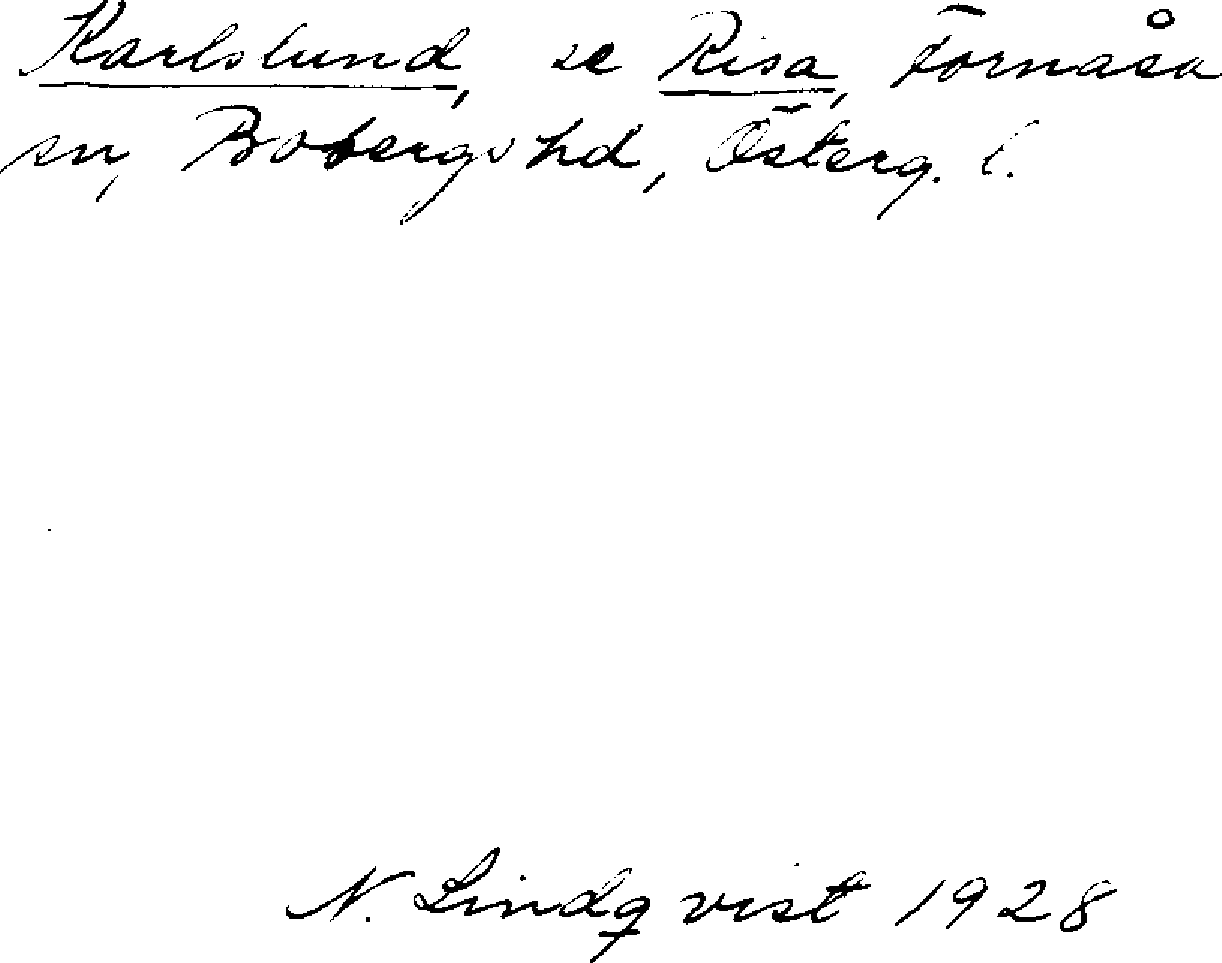 Karlslund, se Risa, Fornåsa
sn, Bobergs hd, Österg. l.
N. Lindqvist 1928